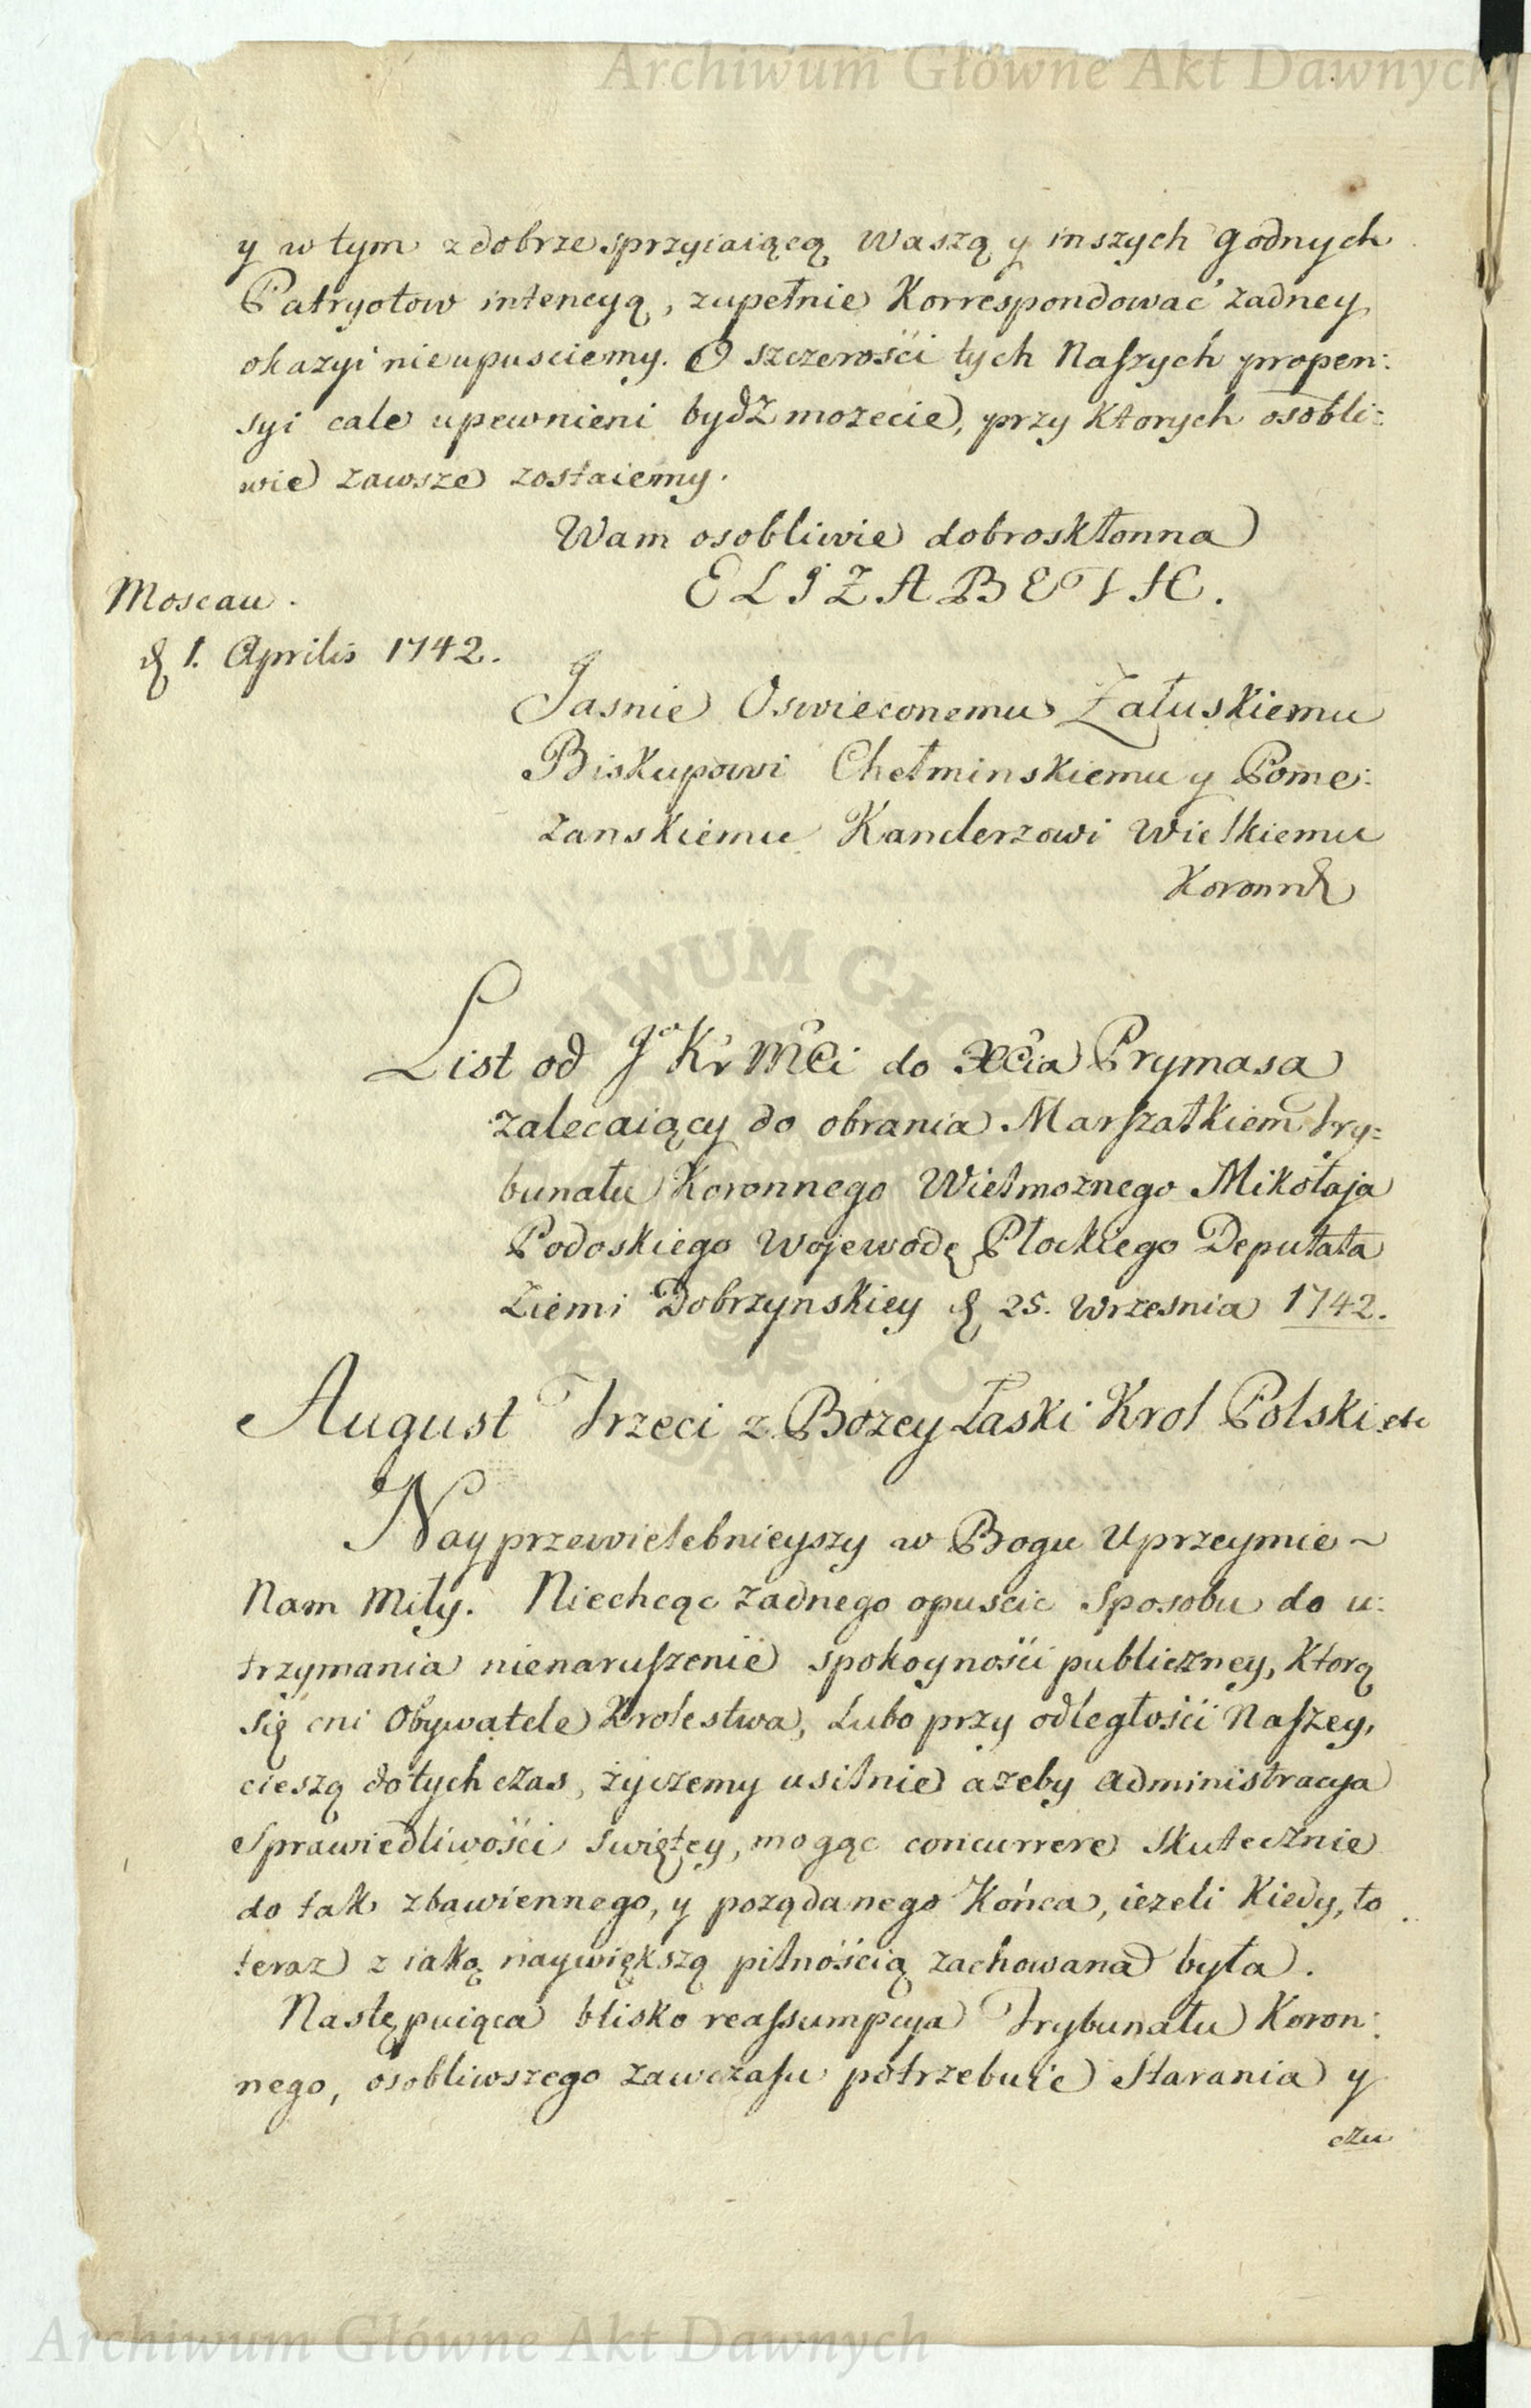 Archiwum Główne Akt Dawnych
y w tym z dobrze sprzyiaiącą Waszą y inszych godnych
Patryotow intencyą, zupełnie Korrespondować żadney
okazyi nieupusciemy. O szczerości tych Naszych propen:
syi cale upewnieni bydź mozecie, przy Ktorych osobli:
wie zawsze zostaiemy.
Wam osobliwie dobroskłonna
ELIZABETH.
Moscau.
d. 1. Aprilis 1742.
Jasnie Oswieconemu Załuskiemu
Biskupowi Chełminskiemu y Pome:
zanskiemu Kanclerzowi Wielkiemu
Koronn.
List od Jo Kr Mći do Xćia Prymasa
zalecaiący do obrania Marszałkiem Try:
bunału Koronnego Wielmoznego Mikołaja
Podoskiego Wojewodę Płockiego Deputata
Ziemi Dobrzynskiey d. 25. Wrzesnia 1742.
August Trzeci z Bozey Łaski Krol Polski etc
Nayprzewielebnieyszy w Bogu Uprzeymie ~
Nam Miły. Niechcąc zadnego opuscic Sposobu do u:
trzymania nienaruszenie spokoyności publiczney, Ktorą
się cni Obywatele Krolestwa, Lubo przy odległości Naszey,
cieszą dotychczas, życzemy usilnie azeby administracya
Sprawiedliwości Swiętey, mogąc concurrere skutecznie
do tak zbawiennego, y poządanego Końca, iezeli Kiedy, to
teraz z iaką naywiększą pilnością zachowana była.
Następuiąca blisko reassumpcya Trybunału Koron:
nego, osobliwszego zawczasu potrzebuie Starania y
czu
ARCHIWUM GŁÓWNE AKT DAWNYCH
Archiwum Główne Akt Dawnych